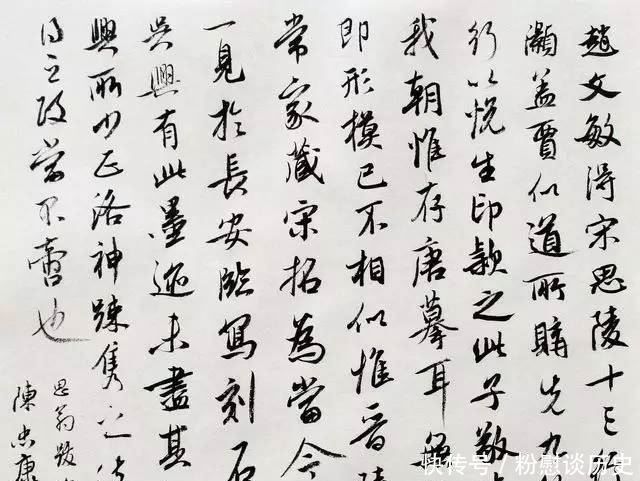 趙文敏得宋思陵十三
灝盖賈似道所購先九
行以悅生印款之此子敬
我朝惟存唐摹耳無
即形模已不相似惟晉
常家藏宋拓為當今
一見於長安臨寫刻石
吳興有此墨迹未盡其
興所少正洛神踈雋之
得之故當不啻也
思翁跋
陳忠康
快传号 / 粉慰谈历史